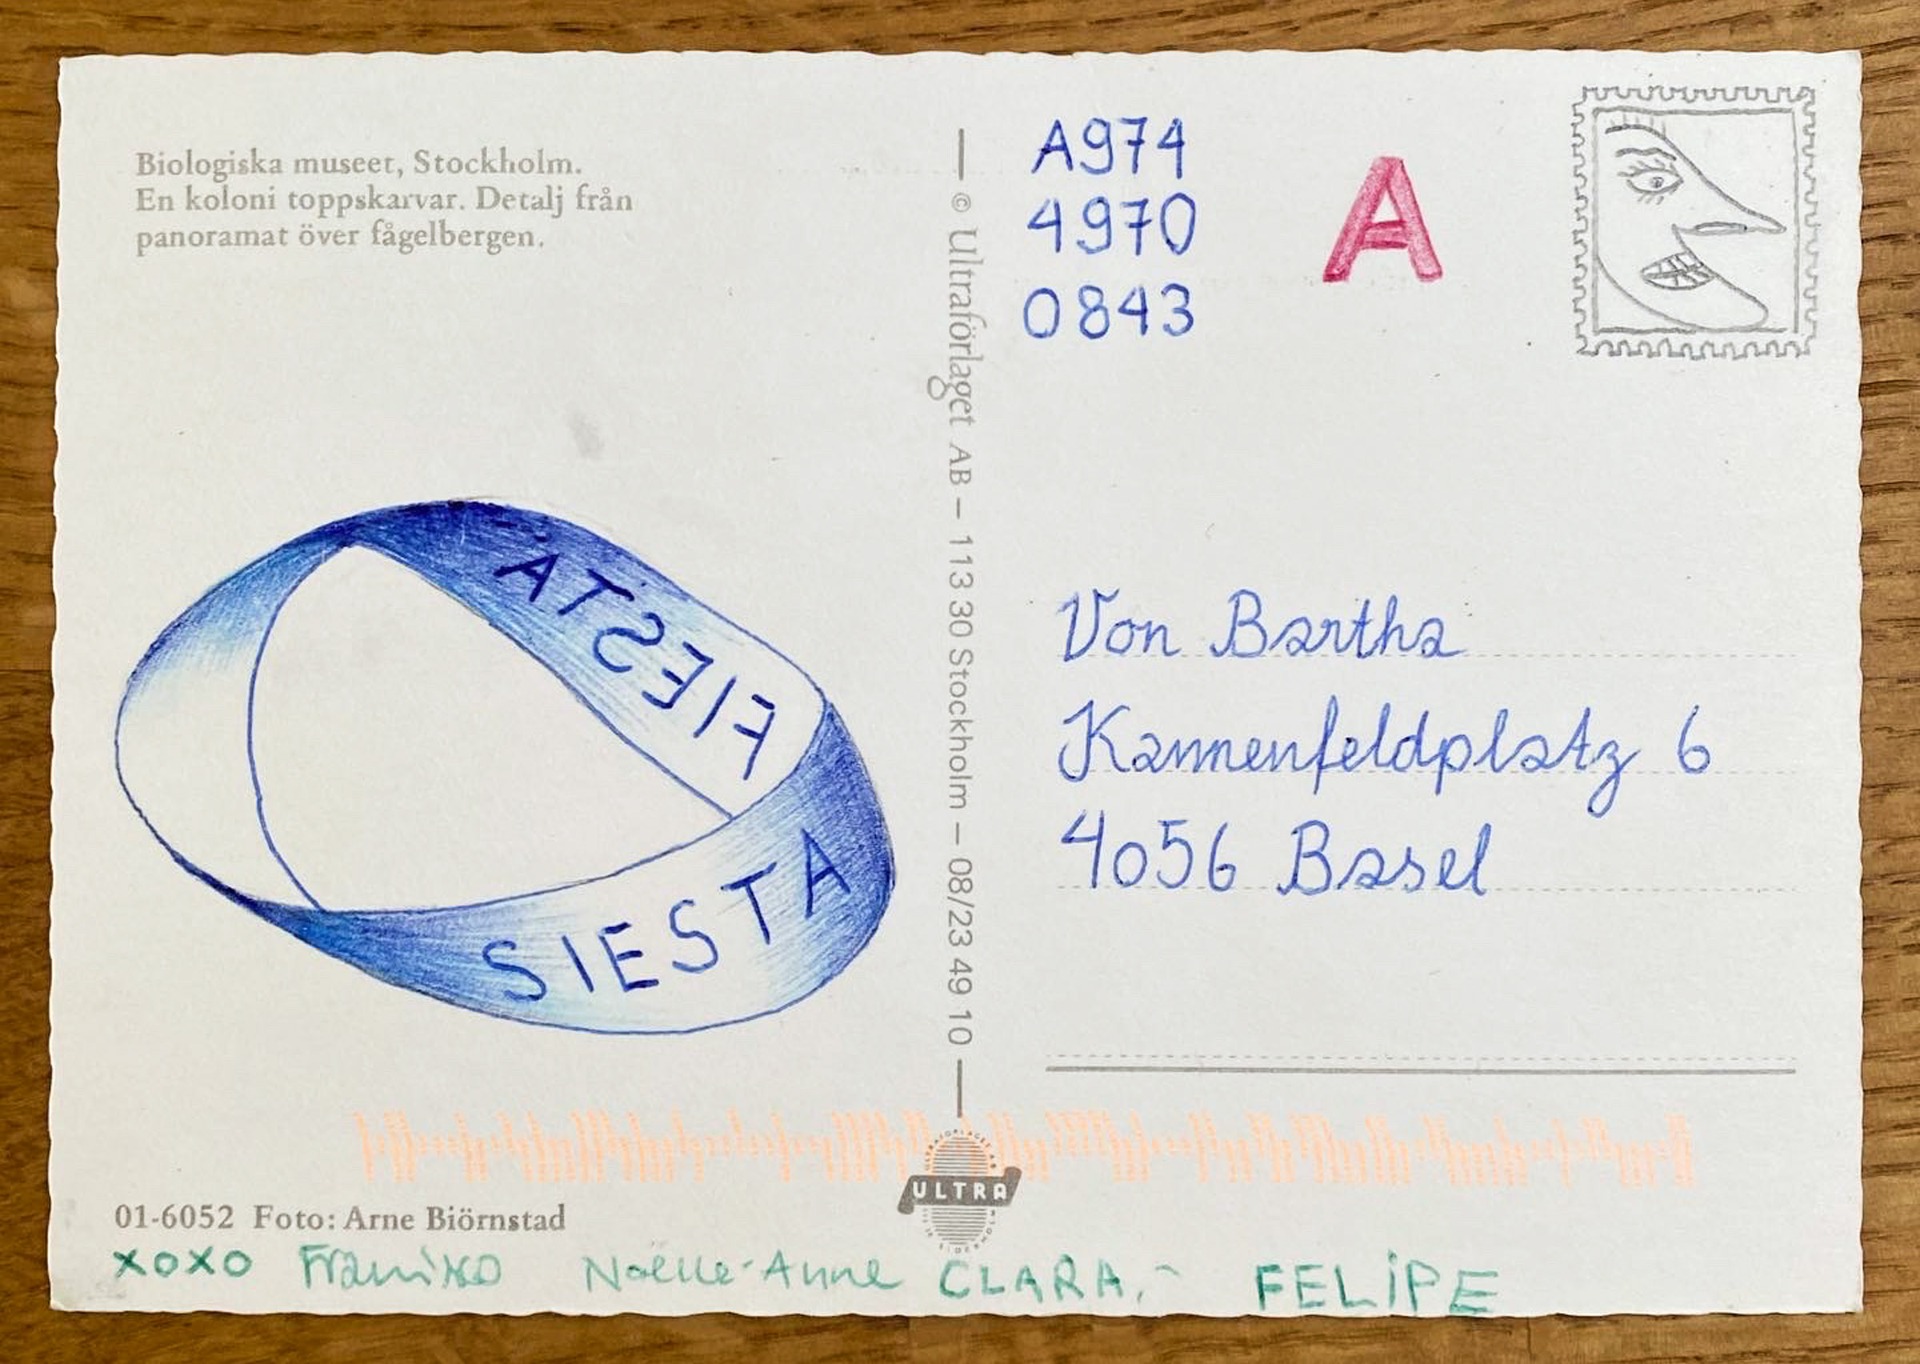 Biologiska museet, Stockholm.
En koloni toppskarvar. Detalj från
panoramat över fågelbergen.
FIESTA
SIESTA
01-6052 Foto: Arne Biörnstad
© Ultraförlaget AB – 113 30 Stockholm – 08/23 49 10
ULTRA
A974
4970
0843
A
Von Bartha
Kannenfeldplatz 6
4056 Basel
xoxo Noëlle-Anne CLARA.- FELiPE